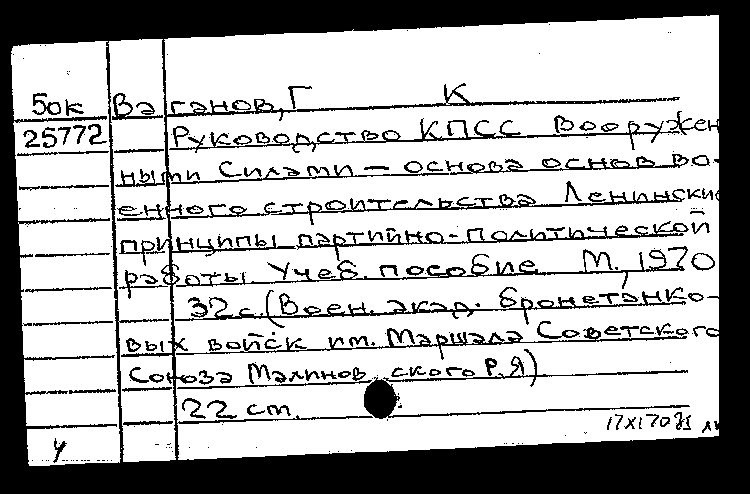 Бок Ваганов, Г К
25772 Руководство КПСС Вооружен
ными Силами — основа основ во-
енного строительства Ленински
принципы партийно-политической
работы. Учеб. пособие М., 1970
32 с. (Воен. акад. бронетанко-
вых войск им. Маршала Советского
Союза Малинов ского Р. Я)
22 cm.